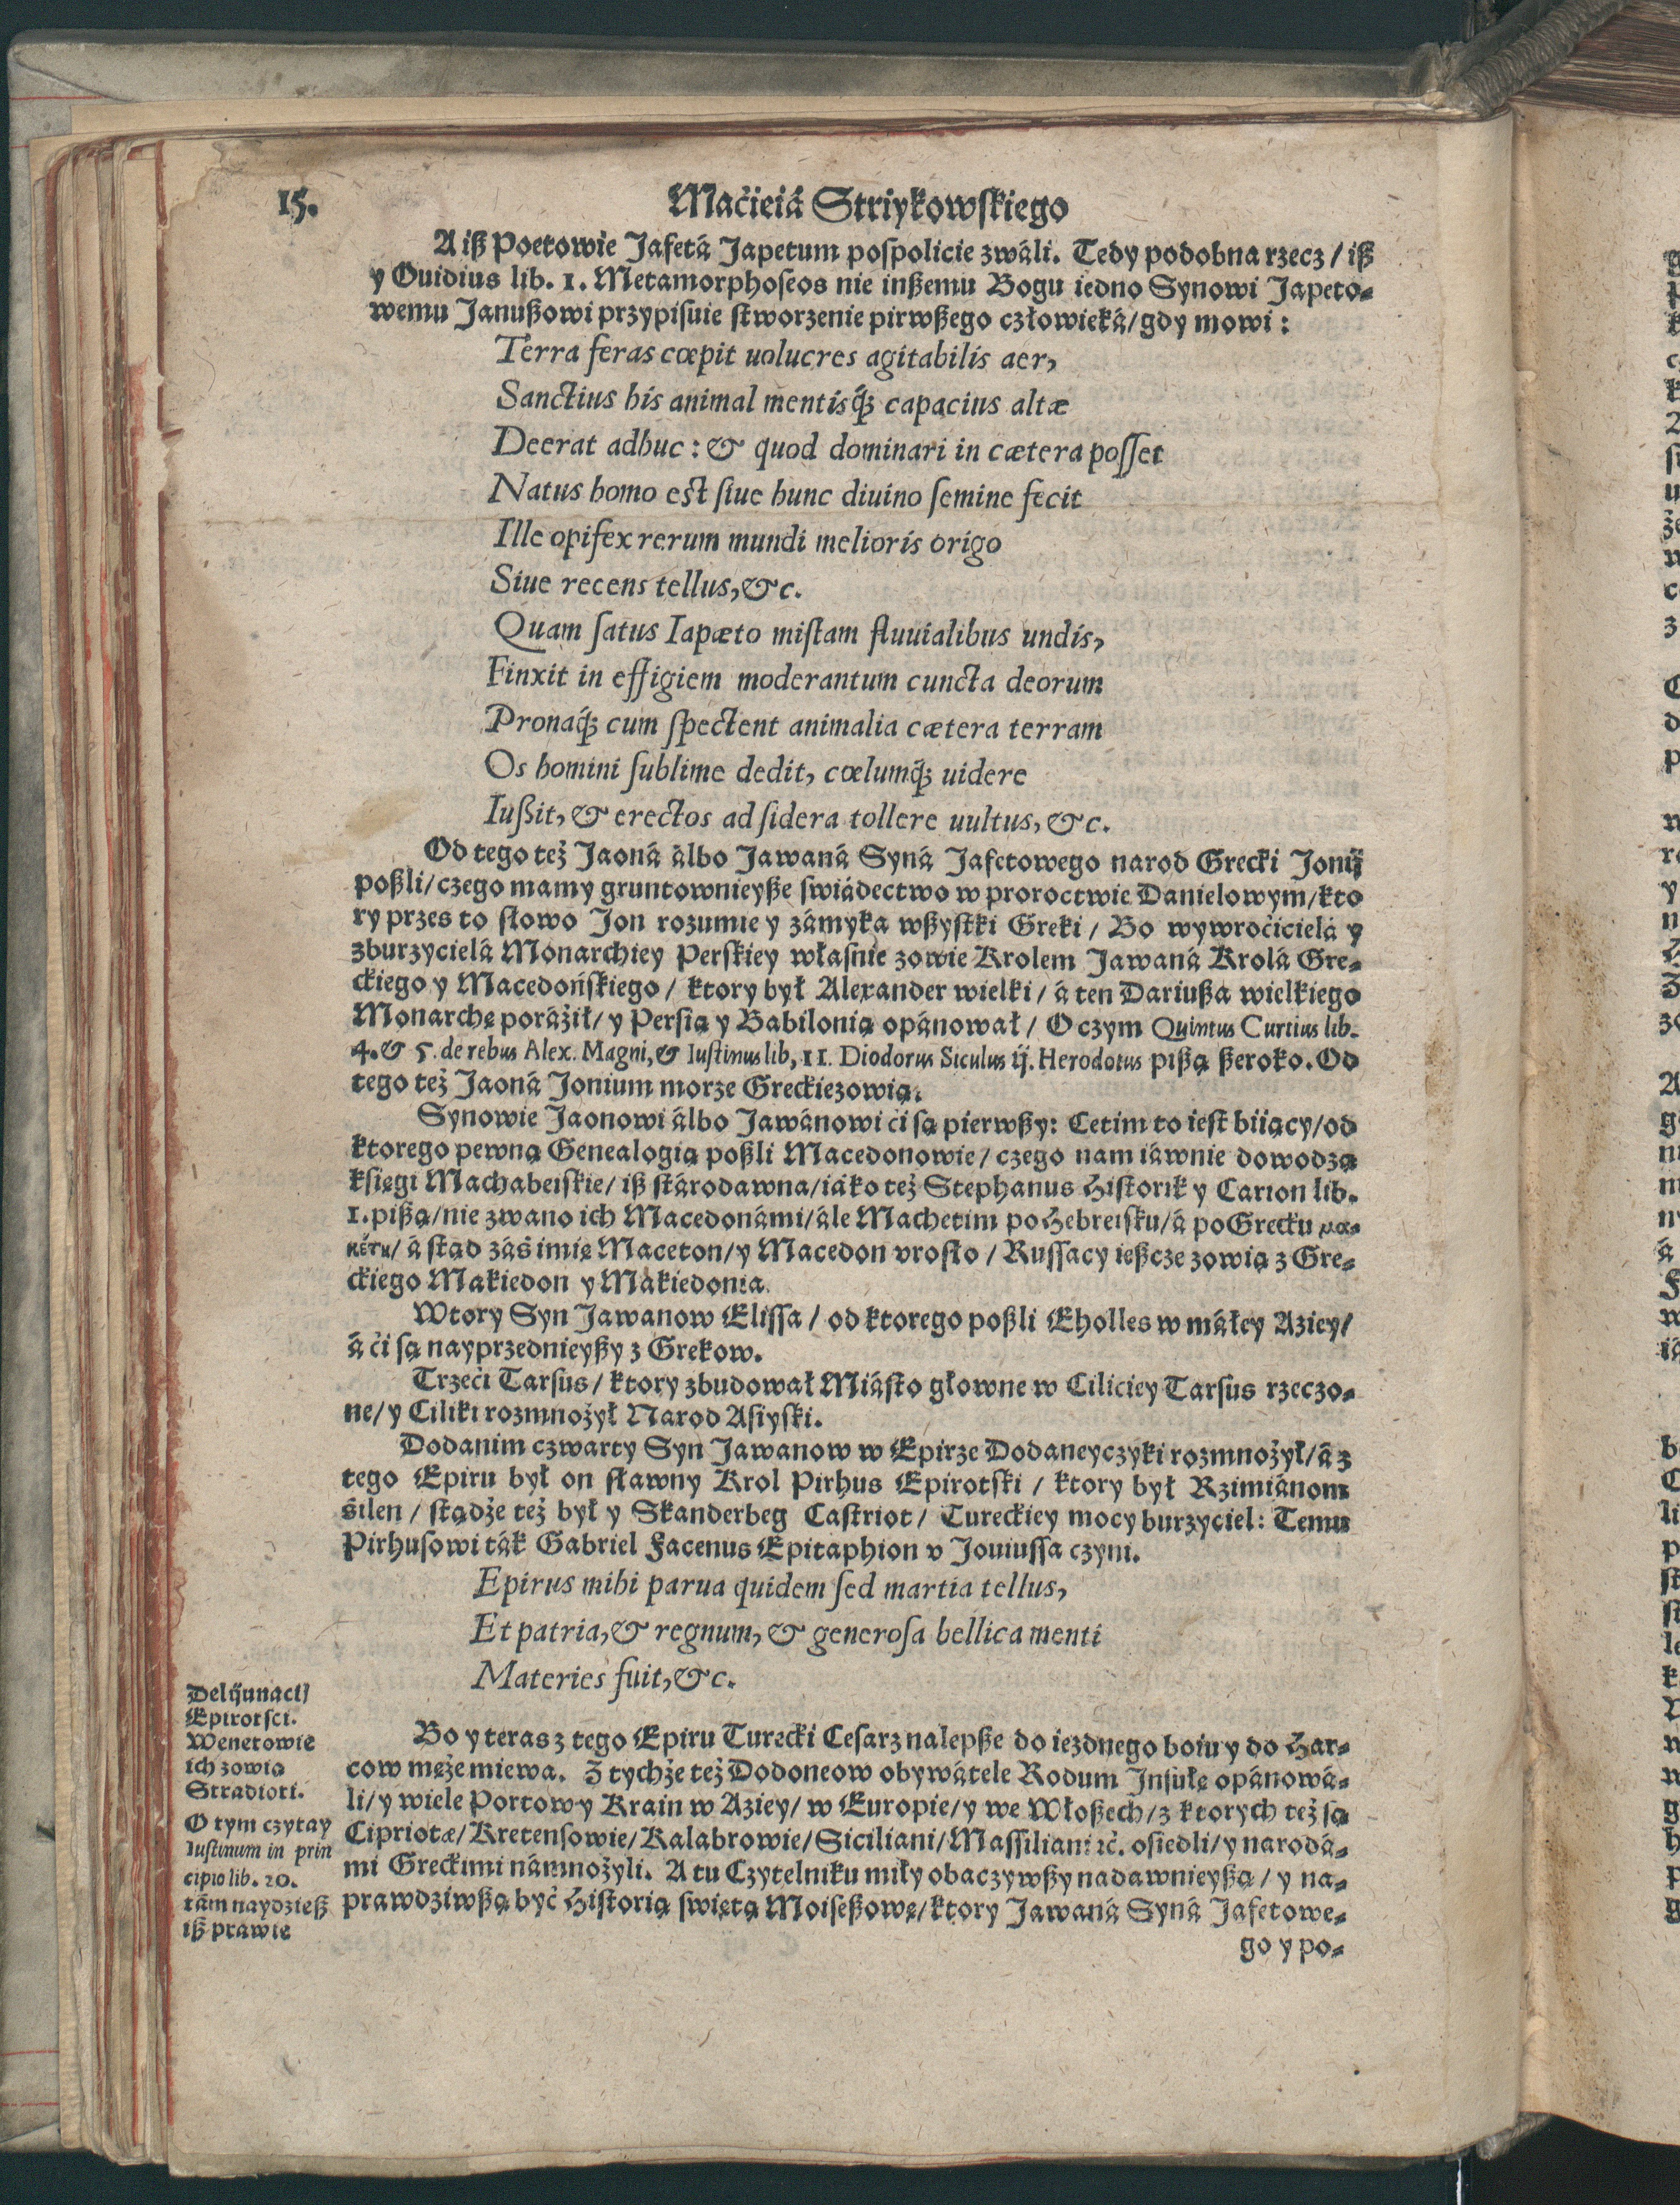 15.
Maćieiá Striykowſkiego
A iß Poetowie Jafetá Japetum poſpolicie zwáli. Tedy podobna rzecz / iß
y Ouidius lib. 1. Metamorphoſeos nie inßemu Bogu iedno Synowi Japeto⸗
wemu Janußowi przypiſuie ſtworzenie pirwßego człowieká/gdy mowi:
Terra feras cœpit uolucres agitabilis aer,
Sanctius his animal mentisq́; capacius altæ
Deerat adhuc: & quod dominari in cætera poſſet
Natus homo eſt ſiue hunc diuino ſemine fecit
Ille opifex rerum mundi melioris origo
Siue recens tellus, &c.
Quam ſatus Iapæto miſtam fluuialibus undis,
Finxit in effigiem moderantum cuncta deorum
Pronaq́; cum ſpectent animalia cætera terram
Os homini ſublime dedit, cœlumq́; uidere
Iußit, & erectos ad ſidera tollere uultus, &c.
Od tego też Jaoná álbo Jawaná Syná Jafetowego narod Grecki Jonij
poßli/czego mamy gruntownieyße ſwiádectwo w proroctwie Danielowym/kto
ry przes to ſłowo Jon rozumie y zámyka wßyſtki Greki / Bo wywroćicielá y
zburzycielá Monarchiey Perſkiey właſnie zowie Krolem Jawaná Krolá Gre⸗
ckiego y Macedońſkiego / ktory był Alexander wielki / á ten Dariußa wielkiego
Monarchę poráżił/ y Perſią y Babilonią opánował / O czym Quintus Curtius lib.
4. & 5. de rebus Alex. Magni, & Iuſtinus lib, 11. Diodorus Siculus ij. Herodotus pißą ßeroko. Od
tego też Jaoná Jonium morze Greckie zowią.
Synowie Jaonowi álbo Jawánowi ći ſą pierwßy: Cetim to ieſt biiący/od
ktorego pewną Genealogią poßli Macedonowie / czego nam iáwnie dowodzą
kſięgi Machabeiſkie/ iß ſtárodawna/iáko też Stephanus Hiſtorik y Carion lib.
1. pißą/nie zwano ich Macedonámi/ále Machetim po Hebreiſku/á po Grecku μα⸗
κέτυ/ á ſtąd záś imię Maceton/y Macedon vroſło / Ruſſacy ießcze zowią z Gre⸗
ckiego Makiedon y Mákiedonia.
Wtory Syn Jawanow Eliſſa / od ktorego poßli Eholles w máłey Aziey/
á ći ſą nayprzednieyßy z Grekow.
Trzeći Tarſus / ktory zbudował Miáſto głowne w Ciliciey Tarſus rzeczo⸗
ne/ y Ciliki rozmnożył Narod Aſiyſki.
Dodanim czwarty Syn Jawanow w Epirze Dodaneyczyki rozmnożył/á z
tego Epiru był on ſławny Krol Pirhus Epirotſki / ktory był Rzimiánom
śilen / ſtądże też był y Skanderbeg Caſtriot / Tureckiey mocy burzyciel: Temu
Pirhuſowi ták Gabriel Facenus Epitaphion v Jouiuſſa czyni.
Epirus mihi parua quidem ſed martia tellus,
Et patria, & regnum, & generoſa bellica menti
Materies fuit, &c.
Bo y teras z tego Epiru Turecki Ceſarz nalepße do iezdnego boiu y do Har⸗
cow męże miewa. Z tychże też Dodoneow obywátele Rodum Inſułę opánowá⸗
li/ y wiele Portow y Krain w Aziey/ w Europie/ y we Włoßech/ z ktorych też ſą
Cipriotæ/ Kretenſowie/ Kalabrowie/ Siciliani/ Maſſiliani ⁊c. oſiedli/ y narodá⸗
mi Greckimi námnożyli. A tu Czytelniku miły obaczywßy nadawnieyßą / y na⸗
prawdziwßą być Hiſtorią ſwiętą Moiſeßowę/ ktory Jawaná Syná Jafetowe⸗
go y po⸗
Epirotſci.
Wenetowie
ich zowią
Stradioti.
O tym czytay
Iuſtinum in prin
cipio lib. 20.
tám naydzieß
iß prawie